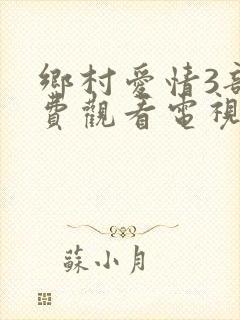 鄉村愛情3部
費觀看電視
蘇小月